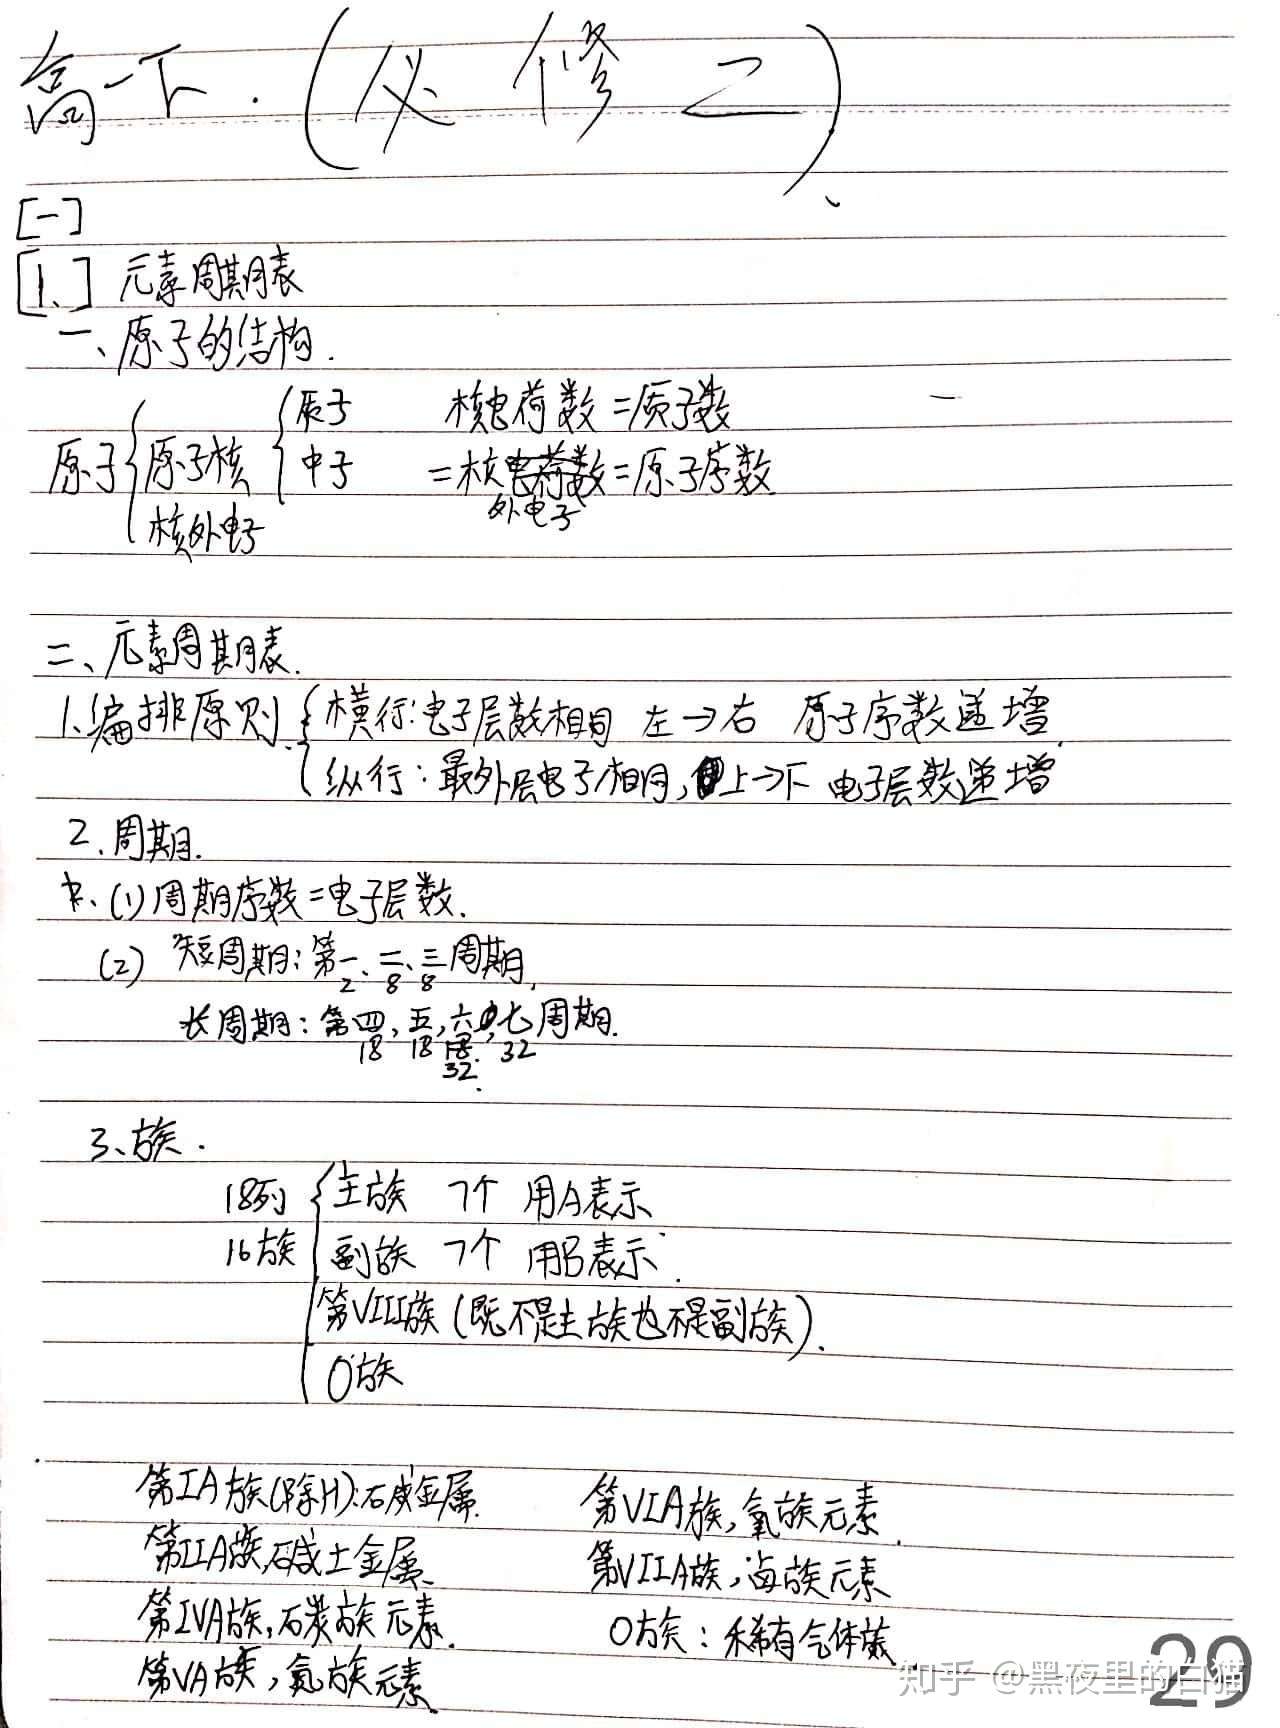 高一下.(必修二).
[一]
[1.] 元素周期表
一、原子的结构.
原子{原子核{质子 核电荷数=质子数
中子 =核电荷数=原子序数
外电子
核外电子
二、元素周期表.
1.编排原则.{横行:电子层数相同 左→右 原子序数递增.
纵行:最外层电子相同,上→下 电子层数递增
2.周期.
(1)周期序数=电子层数.
(2) 短周期:第一、二、三周期.
2 8 8
长周期:第四,五,六,七周期.
18 18 18. 32
32.
3、族.
18列{主族 7个 用A表示
16族 副族 7个 用B表示.
第VIII族(既不是主族也不是副族).
0族
第IA族(除H):碱金属. 第VIA族,氧族元素.
第IIA族,碱土金属. 第VIIA族,卤族元素
第IVA族,碳族元素. 0族:稀有气体族.
第VA族,氮族元素.
知乎 @黑夜里的白猫
29